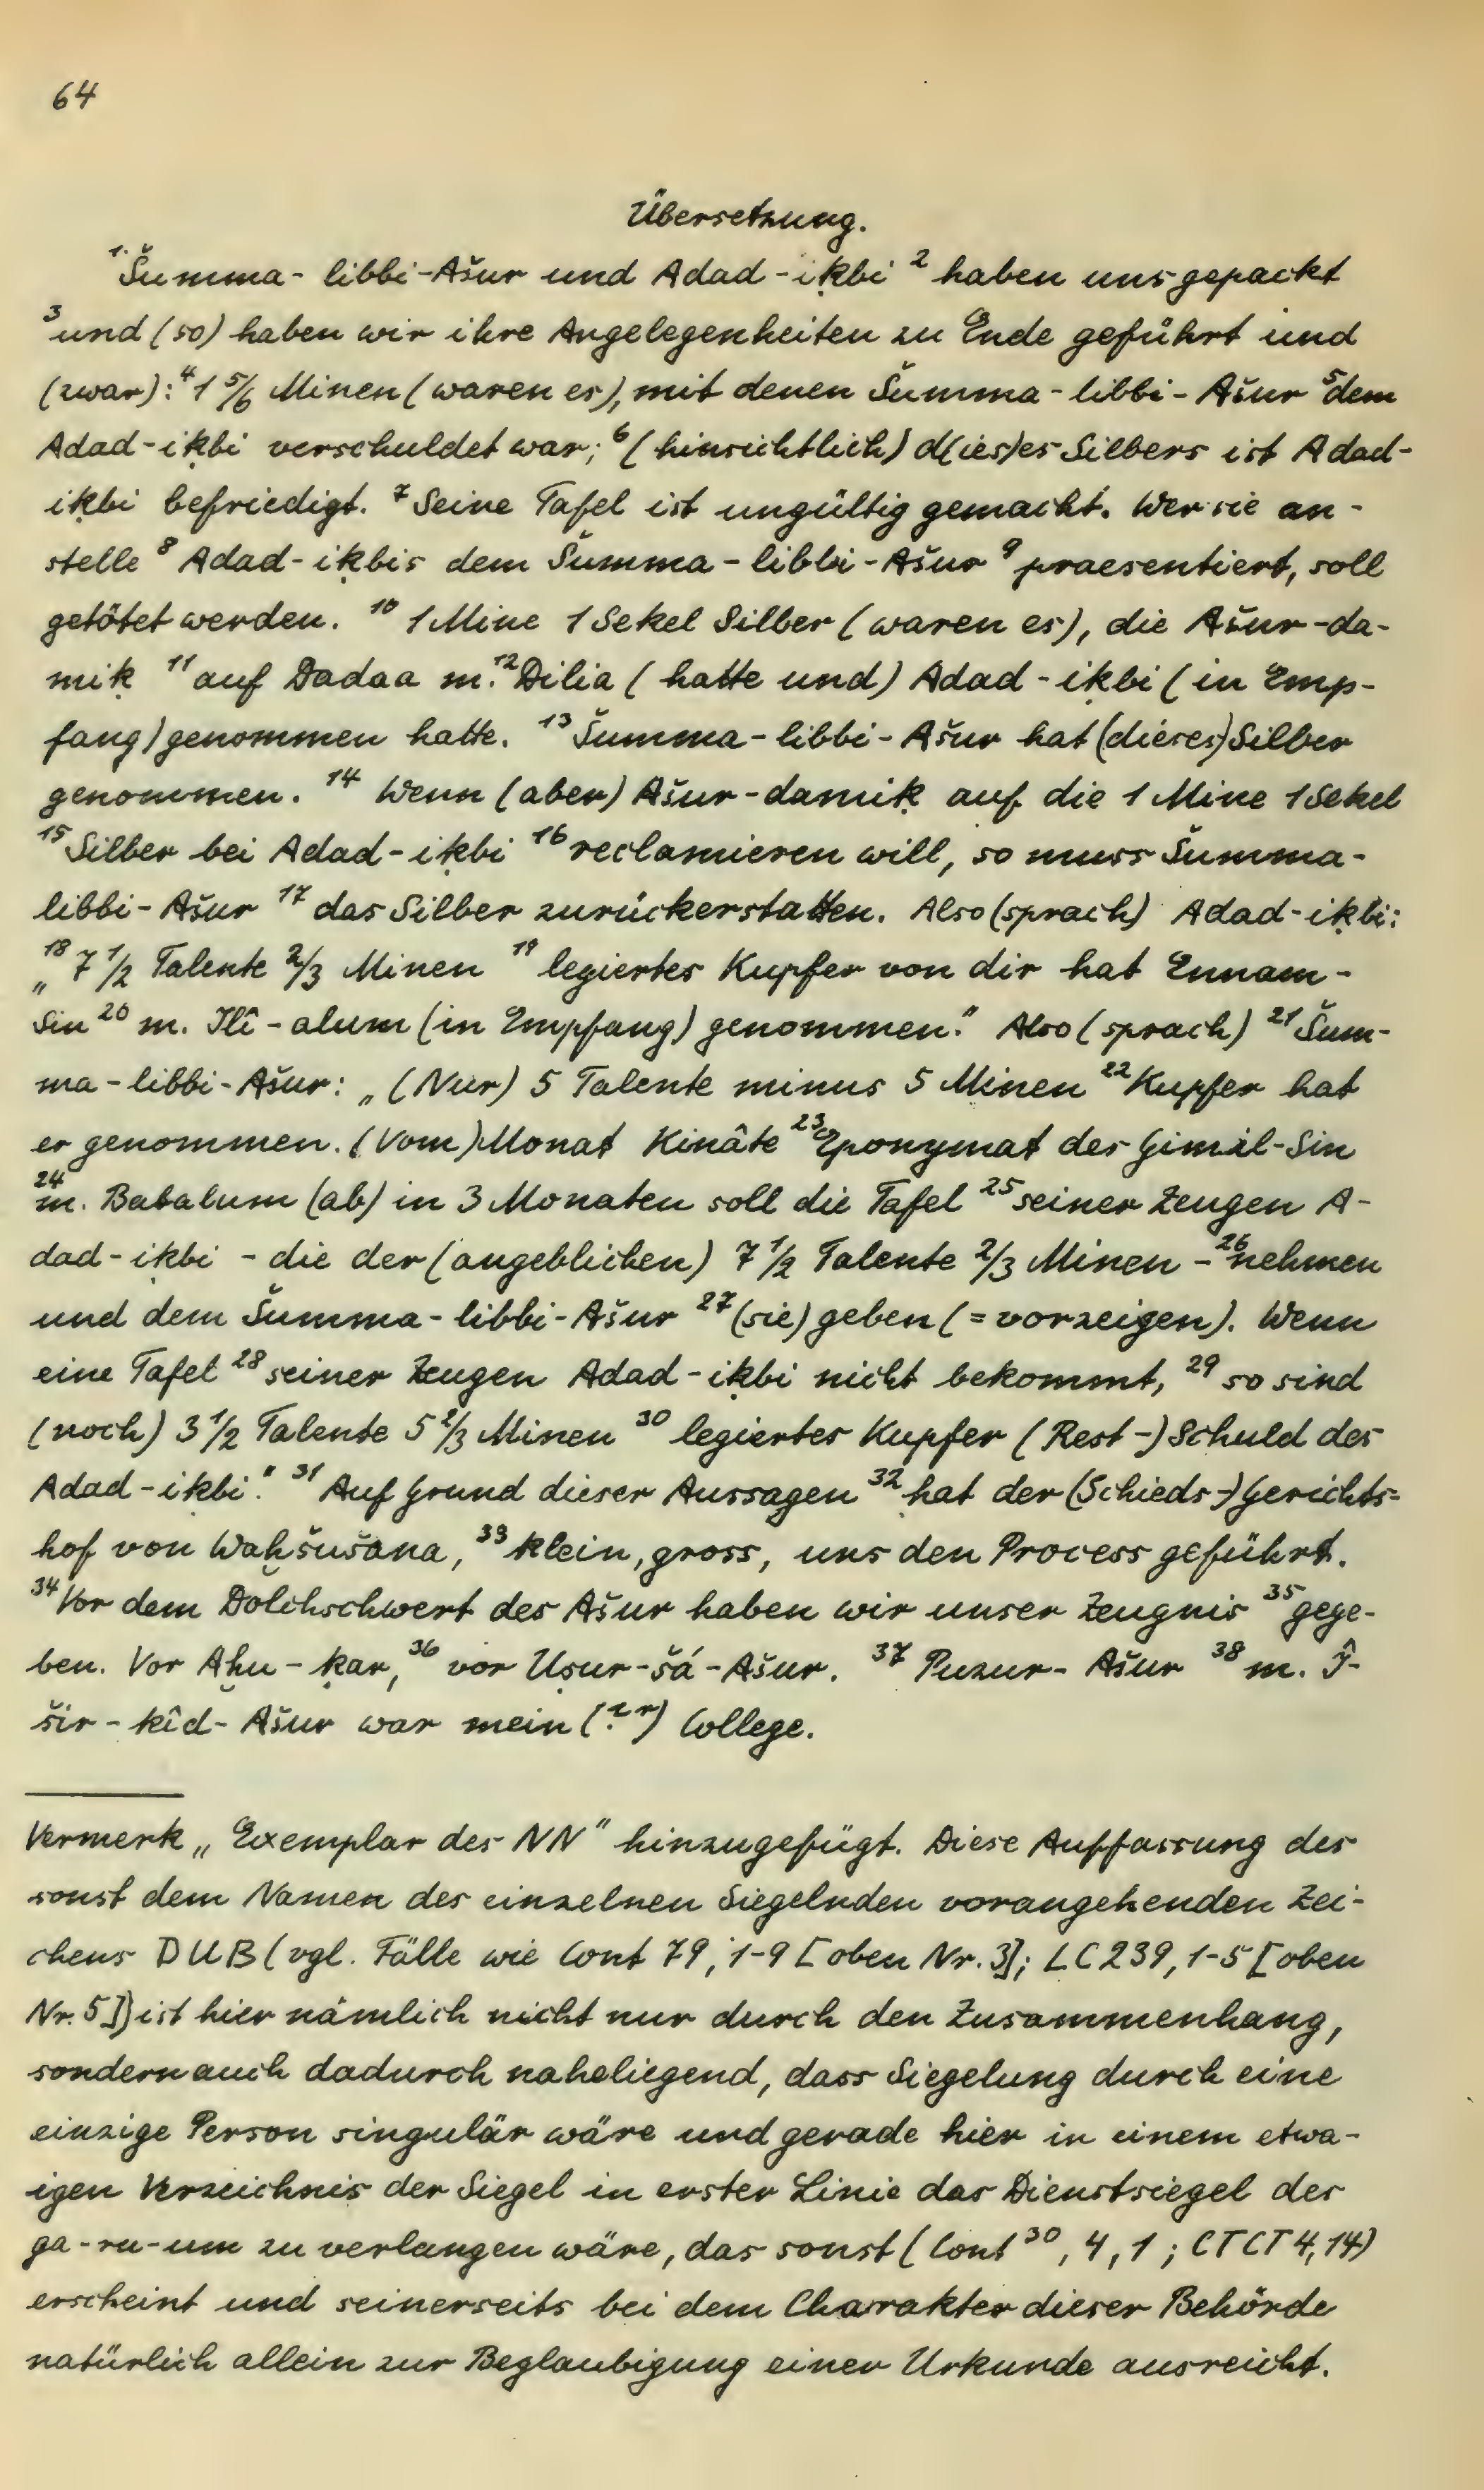 64
Übersetzung.
¹·Šumma-libbi-Ašur und Adad-iḳbi ² haben uns gepackt
³ und (so) haben wir ihre Angelegenheiten zu Ende geführt und
(zwar): ⁴ 1 5/6 Minen (waren es), mit denen Šumma-libbi-Ašur ⁵ dem
Adad-iḳbi verschuldet war; ⁶ (hinsichtlich) d(ies)es Silbers ist Adad-
iḳbi befriedigt. ⁷ Seine Tafel ist ungültig gemacht. Wer sie an-
stelle ⁸ Adad-iḳbis dem Šumma-libbi-Ašur ⁹ praesentiert, soll
getötet werden. ¹⁰ 1 Mine 1 Sekel Silber (waren es), die Ašur-da-
miḳ ¹¹ auf Dadaa m. ¹² Dilia (hatte und) Adad-iḳbi (in Emp-
fang) genommen hatte. ¹³ Šumma-libbi-Ašur hat (dieses) Silber
genommen. ¹⁴ Wenn (aber) Ašur-damiḳ auf die 1 Mine 1 Sekel
¹⁵ Silber bei Adad-iḳbi ¹⁶ reclamieren will, so muss Šumma-
libbi-Ašur ¹⁷ das Silber zurückerstatten. Also (sprach) Adad-iḳbi:
„ ¹⁸ 7 1/2 Talente 2/3 Minen ¹⁹ legiertes Kupfer von dir hat Ennam-
Sin ²⁰ m. Ilî-alum (in Empfang) genommen." Also (sprach) ²¹ Šum-
ma-libbi-Ašur: „(Nur) 5 Talente minus 5 Minen ²² Kupfer hat
er genommen. (Vom) Monat Kinâte ²³ Eponymat des Gimil-Sin
²⁴ m. Babalum (ab) in 3 Monaten soll die Tafel ²⁵ seiner Zeugen A-
dad-iḳbi - die der (angeblichen) 7 1/2 Talente 2/3 Minen - ²⁶ nehmen
und dem Šumma-libbi-Ašur ²⁷ (sie) geben (= vorzeigen). Wenn
eine Tafel ²⁸ seiner Zeugen Adad-iḳbi nicht bekommt, ²⁹ so sind
(noch) 3 1/2 Talente 5 2/3 Minen ³⁰ legiertes Kupfer (Rest-) Schuld des
Adad-iḳbi." ³¹ Auf Grund dieser Aussagen ³² hat der (Schieds-) Gerichts-
hof von Waḫšušana, ³³ klein, gross, uns den Process geführt.
³⁴ Vor dem Dolchschwert des Ašur haben wir unser Zeugnis ³⁵ gege-
ben. Vor Aḫu-ḳar, ³⁶ vor Uṣur-šá-Ašur. ³⁷ Puzur-Ašur ³⁸ m. Î-
šir-kîd-Ašur war mein (?ʳʳ) College.
Vermerk „Exemplar des NN" hinzugefügt. Diese Auffassung des
sonst dem Namen des einzelnen Siegelnden vorangehenden Zei-
chens DUB (vgl. Fälle wie Cont 79, 1-9 [oben Nr. 3]; LC 239, 1-5 [oben
Nr. 5]) ist hier nämlich nicht nur durch den Zusammenhang,
sondern auch dadurch naheliegend, dass Siegelung durch eine
einzige Person singulär wäre und gerade hier in einem etwa-
igen Verzeichnis der Siegel in erster Linie das Dienstsiegel des
ga-ru-um zu verlangen wäre, das sonst (Cont ³⁰, 4, 1; CTCT 4, 14)
erscheint und seinerseits bei dem Charakter dieser Behörde
natürlich allein zur Beglaubigung einer Urkunde ausreicht.